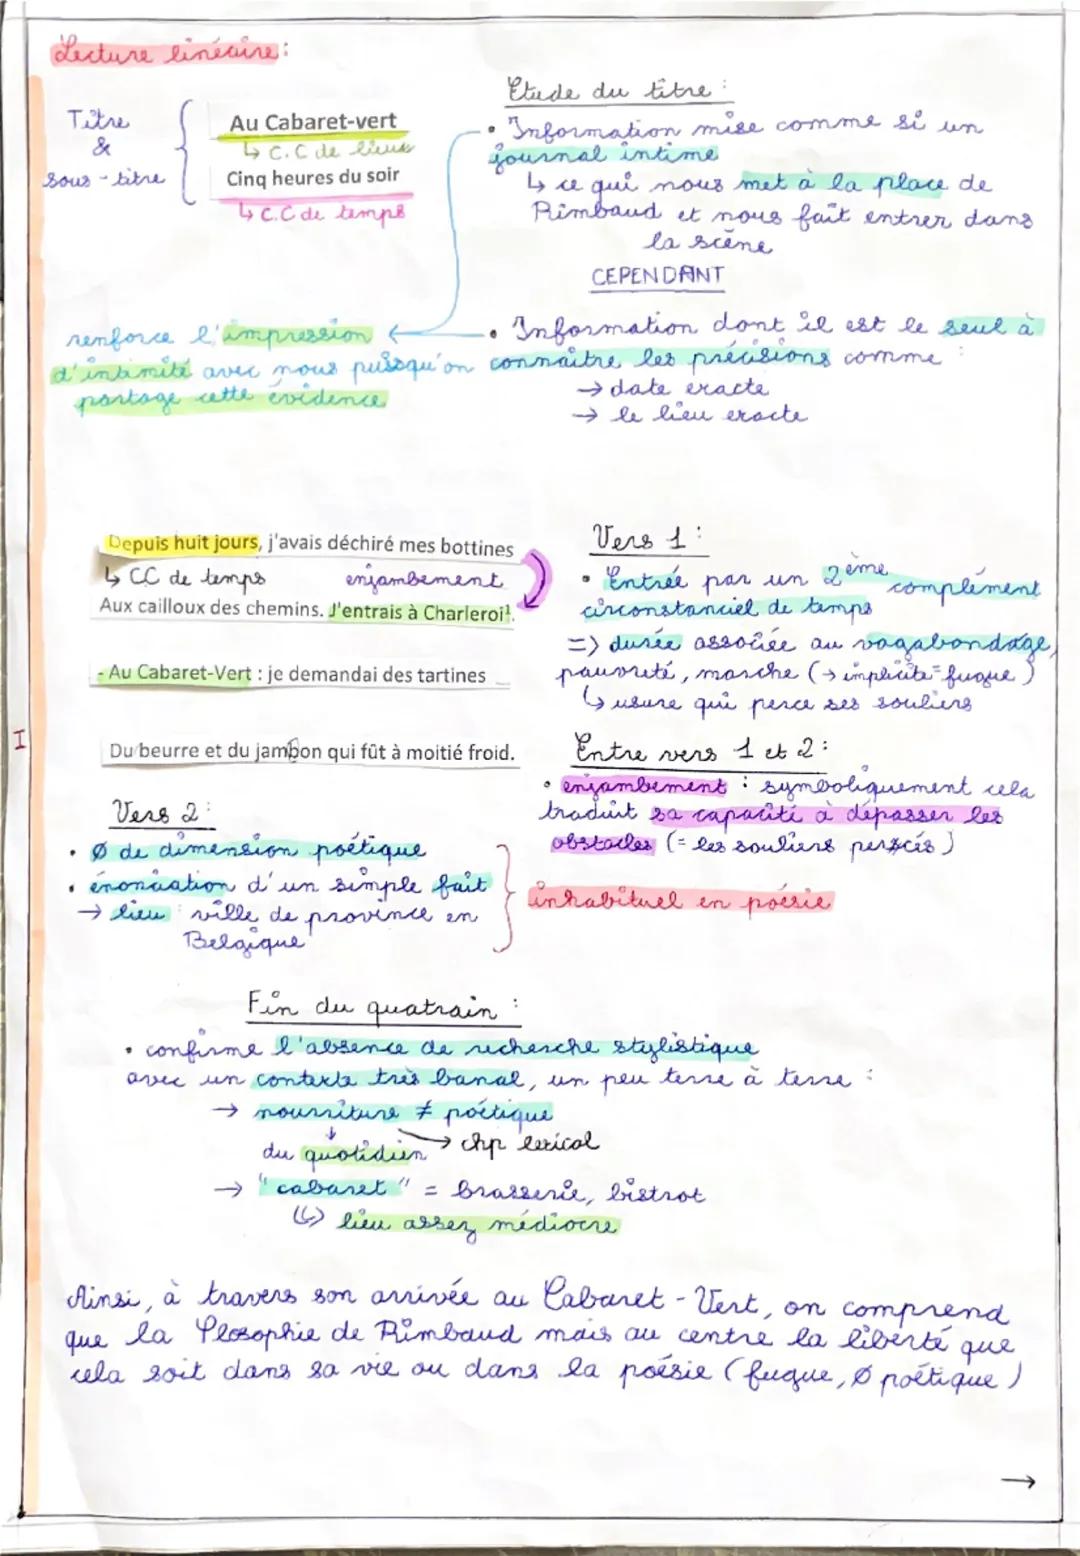 Lecture linéaire:
Titre
&
sous-titre
Au Cabaret-vert
↳ C.C de lieux
Cinq heures du soir
↳ C.C de temps
Etude du titre :
• Information mise comme si un
journal intime
↳ ce qui nous met à la place de
Rimbaud et nous fait entrer dans
la scène
CEPENDANT
• Information dont il est le seul à
connaître les précisions comme :
→ date exacte
→ le lieu exacte
renforce l'impression
d'intimité avec nous puisqu'on
partage cette évidence
I
Depuis huit jours, j'avais déchiré mes bottines
↳ CC de temps
enjambement
Aux cailloux des chemins. J'entrais à Charleroi¹.
- Au Cabaret-Vert : je demandai des tartines
Du beurre et du jambon qui fût à moitié froid.
Vers 1 :
• Entrée par un 2ème complément
circonstanciel de temps
=> durée associée au vagabondage,
pauvreté, marche (→ implicite = fugue)
↳ usure qui perce ses souliers
Entre vers 1 et 2 :
• enjambement : symboliquement cela
traduit sa capacité à dépasser les
obstacles (= les souliers percés)
Vers 2 :
• Ø de dimension poétique
• énonciation d'un simple fait
→ lieu : ville de province en
Belgique
inhabituel en poésie
Fin du quatrain :
• confirme l'absence de recherche stylistique
avec un contexte très banal, un peu terre à terre :
→ nourriture ≠ poétique
du quotidien → chp lexical
→ "cabaret" = brasserie, bistrot
(↳) lieu assez médiocre
Ainsi, à travers son arrivée au Cabaret-Vert, on comprend
que la Plosophie de Rimbaud mais au centre la liberté que
cela soit dans sa vie ou dans la poésie (fugue, Ø poétique)
→